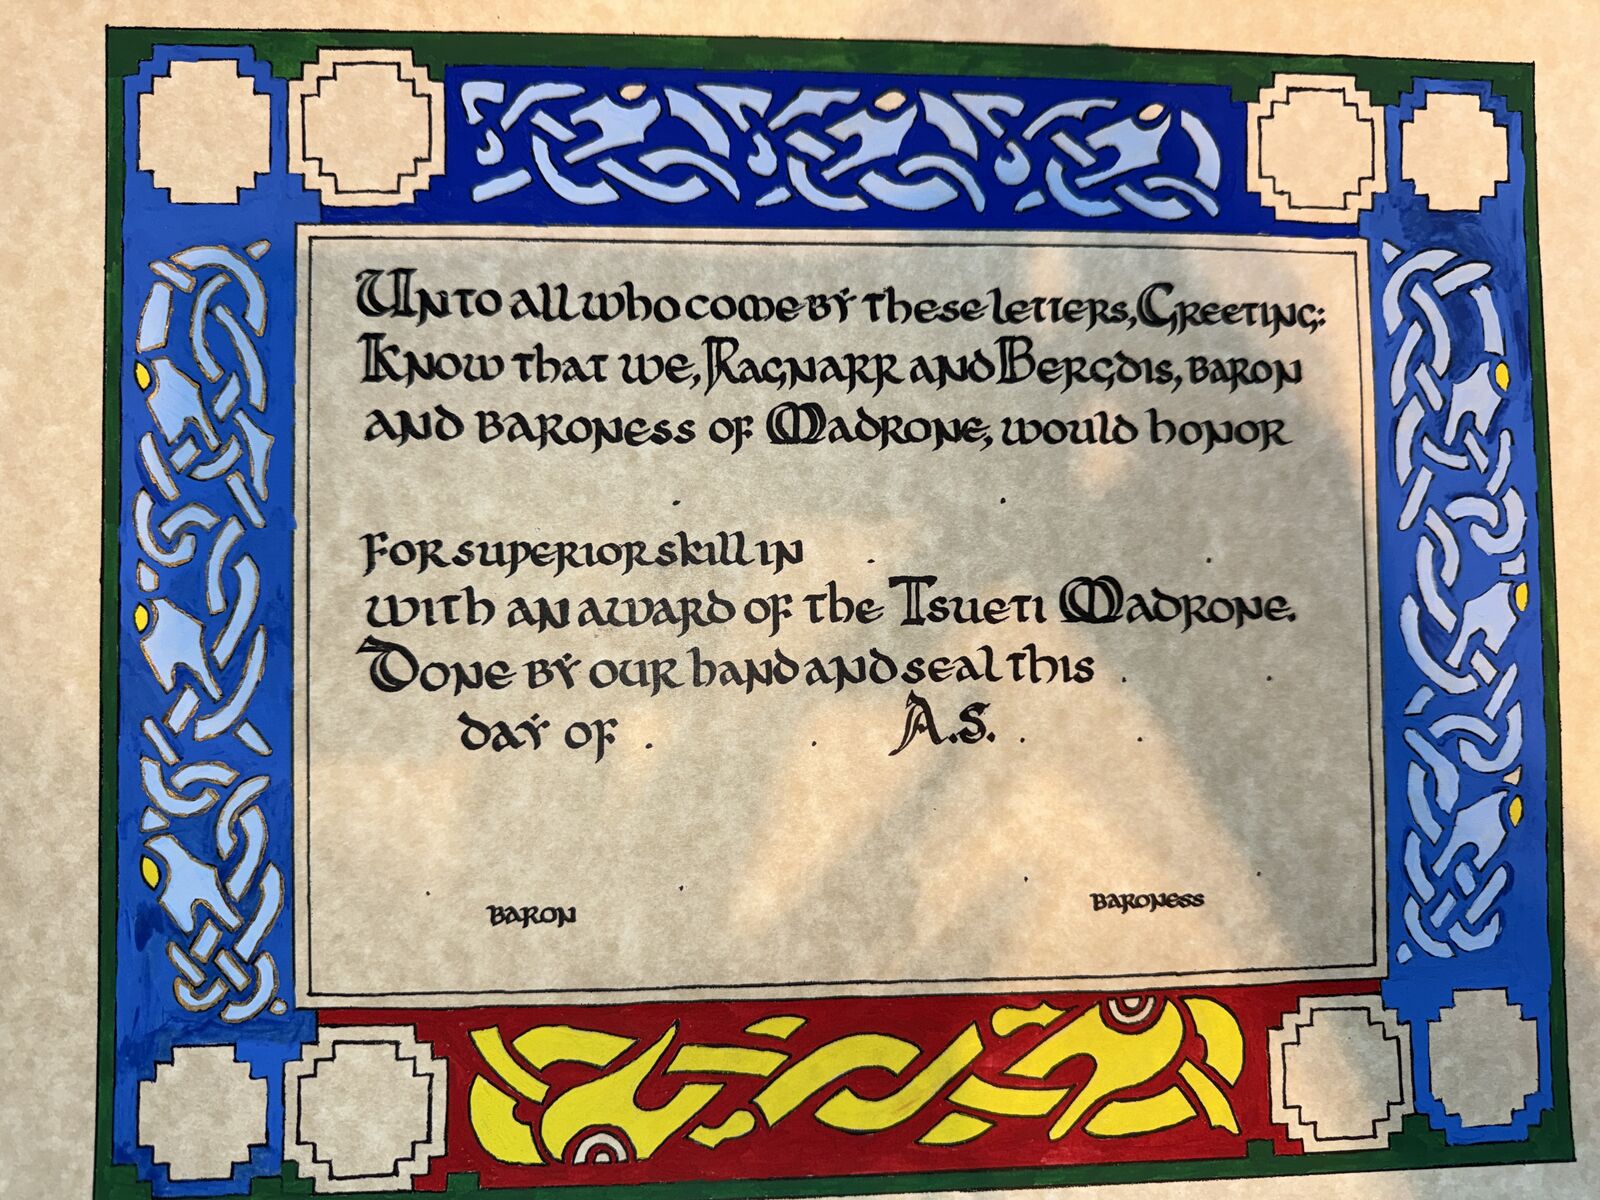 Unto all who come by these letters, Greeting:
Know that we, Ragnarr and Bergdis, baron
and baroness of Madrone, would honor
For superior skill in
with an award of the Tsueti Madrone.
Done by our hand and seal this
day of A.S.
baron baroness